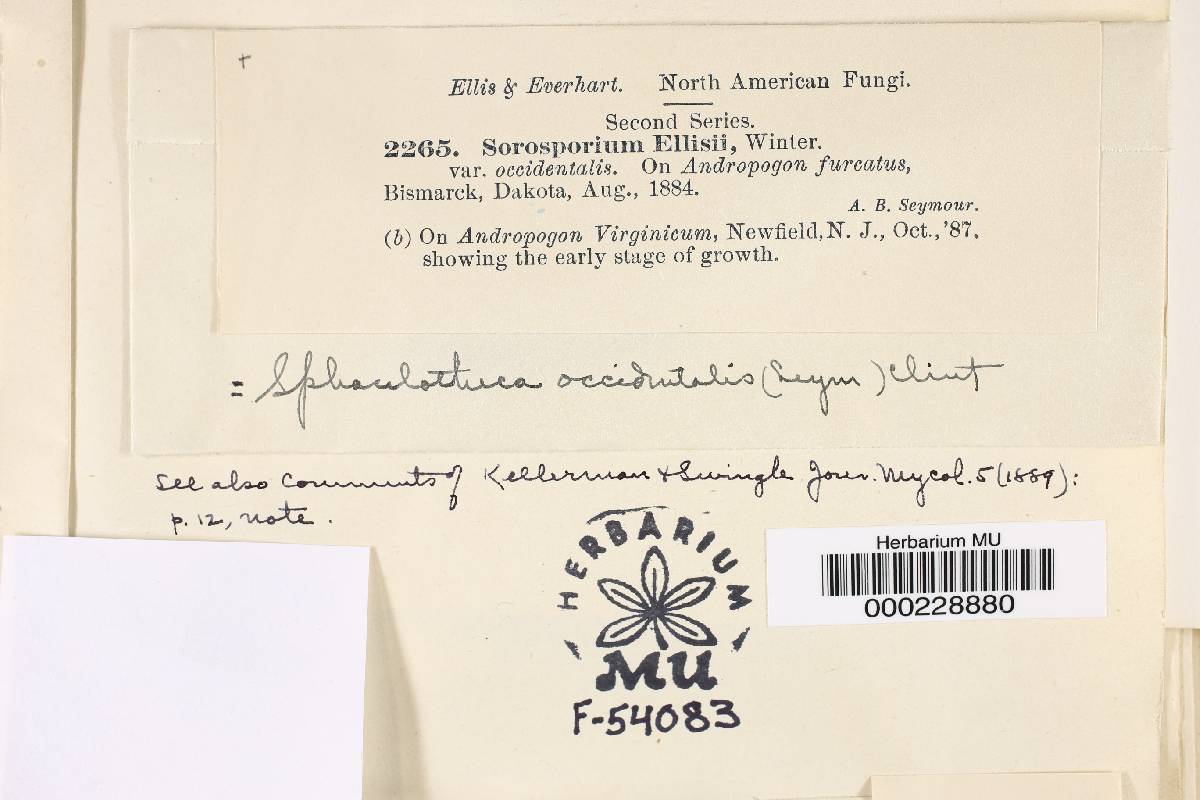 Ellis & Everhart. North American Fungi.
Second Series.
2265. Sorosporium Ellisii, Winter.
var. occidentalis. On Andropogon furcatus,
Bismarck, Dakota, Aug., 1884.
A. B. Seymour.
(b) On Andropogon Virginicum, Newfield, N. J., Oct., '87,
showing the early stage of growth.
= Sphacelotheca occidentalis (Seym) Clint
See also comments of Kellerman & Swingle Jour. Mycol. 5 (1889):
p. 12, note.
HERBARIUM
MU
F-54083
Herbarium MU
000228880